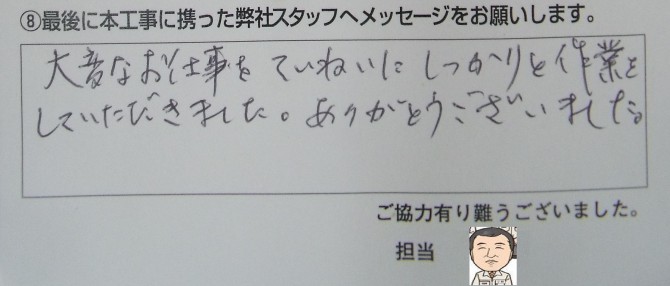 ⑧最後に本工事に携った弊社スタッフへメッセージをお願いします。
大変なお仕事を ていねいに しっかりと作業を
していただきました。ありがとうございました。
ご協力有り難うございました。
担当